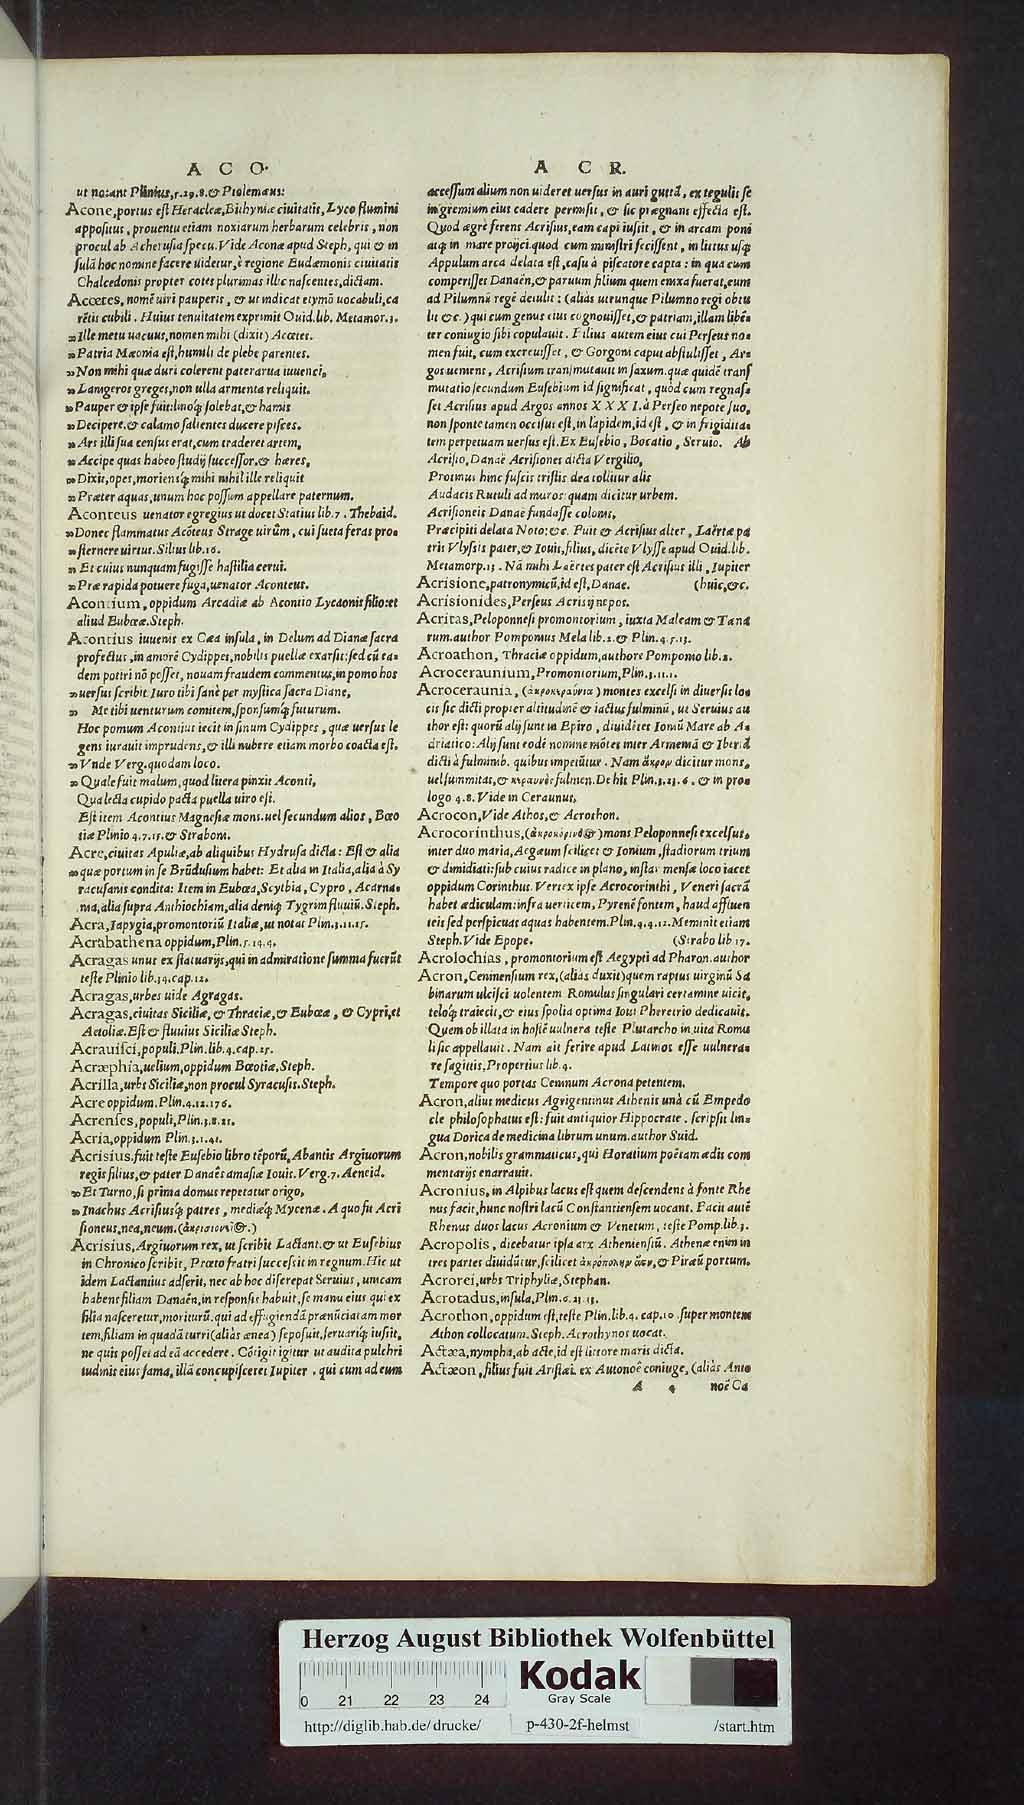 A C O.
ut notant Plinius, r.29.8. & Ptolemæus:
Acone, portus est Heracleæ, Bithyniæ ciuitatis, Lyco flumini
appositus, prouentu etiam noxiarum herbarum celebris, non
procul ab Acherusia specu. Vide Aconæ apud Steph, qui & in
sulã hoc nomine facere uidetur, è regione Eudæmonis ciuitatis
Chalcedonis propter cotes plurimas illic nascentes, dictam.
Acœtes, nomẽ uiri pauperis, & ut indicat etymõ uocabuli, ca
rẽtis cubili. Huius tenuitatem exprimit Ouid. lib. Metamor.3.
» Ille metu uacuus, nomen mihi (dixit) Acœtet.
» Patria Mæonia est, humili de plebe parentes.
» Non mihi quæ duri colerent pater arua iuuenci,
» Lanigeros greges, non ulla armenta reliquit.
» Pauper & ipse fuit: linoq́; solebat, & hamis
» Decipere, & calamo salientes ducere pisces.
» Ars illi sua census erat, cum traderet artem,
» Accipe quas habeo studij successor, & hæres,
» Dixit, opes, moriensq́; mihi nihil ille reliquit
» Præter aquas, unum hoc possum appellare paternum.
Aconteus uenator egregius ut docet Statius lib.7. Thebaid.
» Donec flammatus Acõteus Strage uirûm, cui sueta feras pro=
» sternere uirtus. Silius lib.16.
» Et cuius nunquam fugisse hastilia cerui.
» Præ rapida potuere fuga, uenator Aconteus.
Acontium, oppidum Arcadiæ ab Acontio Lycaonis filio: et
aliud Eubœæ. Steph.
Acontius iuuenis ex Cæa insula, in Delum ad Dianæ sacra
profectus, in amorẽ Cydippes, nobilis puellæ exarsit: sed cũ ea=
dem potiri nõ posset, nouam fraudem commentus, in pomo hos
» uersus scribit. Iuro tibi sanè per mystica sacra Diane,
» Me tibi uenturum comitem, sponsumq́; futurum.
Hoc pomum Acontius iecit in sinum Cydippes, quæ uersus le
gens iurauit imprudens, & illi nubere etiam morbo coacta est.
» Vnde Verg. quodam loco.
» Quale fuit malum, quod litera pinxit Aconti,
Qua lecta cupido pacta puella uiro est.
Est item Acontius Magnesiæ mons. uel secundum alios, Bœo
tiæ Plinio 4.7.15. & Straboni.
Acre, ciuitas Apuliæ, ab aliquibus Hydrusa dicta: Est & alia
» quæ portum in se Brũdusium habet: Et alia in Italia, alia à Sy
racusanis condita: Item in Eubœa, Scythia, Cypro, Acarna=
nia, alia supra Anthiochiam, alia deniq́; Tygrim fluuiũ. Steph.
Acra, Iapygia, promontoriũ Italiæ, ut notat Plin.3.11.15.
Acrabathena oppidum, Plin.5.14.4.
Acragas unus ex statuarijs, qui in admiratione summa fuerũt
teste Plinio lib.34.cap.12.
Acragas, urbes uide Agragas.
Acragas, ciuitas Siciliæ, & Thraciæ, & Eubœæ, & Cypri, et
Aetoliæ. Est & fluuius Siciliæ Steph.
Acrauisci, populi. Plin.lib.4.cap.25.
Acræphia, uelium, oppidum Bœotiæ, Steph.
Acrilla, urbs Siciliæ, non procul Syracusis. Steph.
Acre oppidum. Plin.4.12.176.
Acrenses, populi, Plin.3.8.21.
Acria, oppidum Plin.3.1.41.
Acrisius, fuit teste Eusebio libro tẽporũ, Abantis Argiuorum
regis filius, & pater Danaẽs amasiæ Iouis. Verg.7. Aeneid.
» Et Turno, si prima domus repetatur origo,
» Inachus Acrisiusq́; patres, mediæq́; Mycenæ. A quo fit Acri
sioneus, nea, neum. (ἀκρισιονῆος.)
Acrisius, Argiuorum rex, ut scribit Lactant. & ut Eusebius
in Chronico scribit, Prœto fratri successit in regnum. Hic ut
idem Lactantius adserit, nec ab hoc discrepat Seruius, unicam
habens filiam Danaën, in responsis habuit, se manu eius qui ex
filia nasceretur, moriturũ. qui ad effugiendã prænũciatam mor
tem, filiam in quadã turri (aliàs ænea) seposuit, seruariq́; iussit,
ne quis posset ad eã accedere. Cõtigit igitur ut audita pulchri
tudinis eius fama, illã concupisceret Iupiter. qui cum ad eum
A C R.
accessum alium non uideret uersus in auri guttã, ex tegulis se
in gremium eius cadere permisit, & sic prægnans effecta est.
Quod ægrè ferens Acrisius, eam capi iussit, & in arcam poni
atq́; in mare proijci. quod cum ministri fecissent, in litus usq́;
Appulum arca delata est, casu à piscatore capta: in qua cum
comperisset Danaën, & paruum filium quem enixa fuerat, eum
ad Pilumnũ regẽ detulit: (aliàs utrunque Pilumno regi obtu
lit &c.) qui cum genus eius cognouisset, & patriam, illam libẽ=
ter coniugio sibi copulauit. Filius autem eius cui Perseus no=
men fuit, cum excreuisset, & Gorgoni caput abstulisset, Ar=
gos uenient, Acrisium transmutauit in saxum. quæ quidẽ transf
mutatio secundum Eusebium id significat, quòd cum regnas=
set Acrisius apud Argos annos XXXI. à Perseo nepote suo,
non sponte tamen occisus est, in lapidem, id est, & in frigidita=
tem perpetuam uersus est. Ex Eusebio, Bocatio, Seruio. Ab
Acrisio, Danaë Acrisiones dicta Vergilio,
Protinus hinc fuscis tristis dea tollitur alis
Audacis Rutuli ad muros: quam dicitur urbem.
Acrisioneis Danaë fundasse colonis,
Præcipiti delata Noto: &c. Fuit & Acrisius alter, Laërtæ pa
tris Vlyssis pater, & Iouis, filius, dicẽte Vlysse apud Ouid.lib.
Metamorp.13. Nã mihi Laërtes pater est Acrisius illi, Iupiter
Acrisione, patronymicũ, id est, Danae. (huic, &c.
Acrisionides, Perseus Acrisij nepos.
Acritas, Peloponnesi promontorium, iuxta Maleam & Tana
rum. author Pomponius Mela lib.2. & Plin.4.5.13.
Acroathon, Thraciæ oppidum, authore Pomponio lib.2.
Acroceraunium, Promontorium, Plin.3.11.1.
Acroceraunia, (ἀκροκεραύνια) montes excelsi in diuersis lo=
cis sic dicti propter altitudinẽ & iactus fulminũ, ut Seruius au
thor est: quorũ alij sunt in Epiro, diuidẽtes Ioniũ Mare ab A=
driatico: Alij sunt eodẽ nomine mõtes inter Armeniã & Iberiã
dicti à fulminib. quibus impetũtur. Nam ἄκρον dicitur mons,
uel summitas, & κεραυνὸς fulmen. De his Plin.3.23.6. & in pro=
logo 4.8. Vide in Ceraunus,
Acrocon, Vide Athos, & Acrothon.
Acrocorinthus, (ἀκροκόρινθος) mons Peloponnesi excelsus,
inter duo maria, Aegæum scilicet & Ionium, stadiorum trium
& dimidiati: sub cuius radice in plano, instar mensæ loco iacet
oppidum Corinthus. Vertex ipse Acrocorinthi, Veneri sacrã
habet ædiculam: infra uerticem, Pyrenẽ fontem, haud affluen
teis sed perspicuat aquas habentem. Plin.4.4.12. Meminit etiam
Steph. Vide Epope. (Strabo lib 17.
Acrolochias, promontorium est Aegypti ad Pharon. author
Acron, Ceninensium rex, (aliàs duxit) quem raptus uirginũ Sa
binarum ulcisci uolentem Romulus singulari certamine uicit,
teloq́; traiecit, & eius spolia optima Ioui Pheretrio dedicauit.
Quem ob illata in hostẽ uulnera teste Plutarcho in uita Romu
li sic appellauit. Nam ait ferire apud Latinos esse uulnera=
re sagittis, Propertius lib.4.
Tempore quo portas Ceninum Acrona petentem.
Acron, alius medicus Agrigentinus Athenis unà cũ Empedo
cle philosophatus est: fuit antiquior Hippocrate. scripsit lin=
gua Dorica de medicina librum unum. author Suid.
Acron, nobilis grammaticus, qui Horatium poëtam ædis com
mentarijs enarrauit.
Acronius, in Alpibus lacus est quem descendens à fonte Rhe
nus facit, hunc nostri lacũ Constantiensem uocant. Facit autẽ
Rhenus duos lacus Acronium & Venetum, teste Pomp.lib.3.
Acropolis, dicebatur ipsa arx Atheniensiũ. Athenæ enim in
tres partes diuidũtur, scilicet ἀκρόπολιν ἄστυ, & Piræũ portum.
Acrorei, urbs Triphyliæ, Stephan.
Acrotadus, insula, Plin.6.23.13.
Acrothon, oppidum est, teste Plin.lib.4. cap.10. super montem
Athon collocatum. Steph. Acrothynos uocat.
Actæa, nympha, ab acte, id est littore maris dicta.
Actæon, filius fuit Aristæi, ex Autonoẽ coniuge, (aliàs Anto
A 4 noẽ Ca
Herzog August Bibliothek Wolfenbüttel
Kodak
Gray Scale
0 21 22 23 24
http://diglib.hab.de/drucke/ p-430-2f-helmst /start.htm